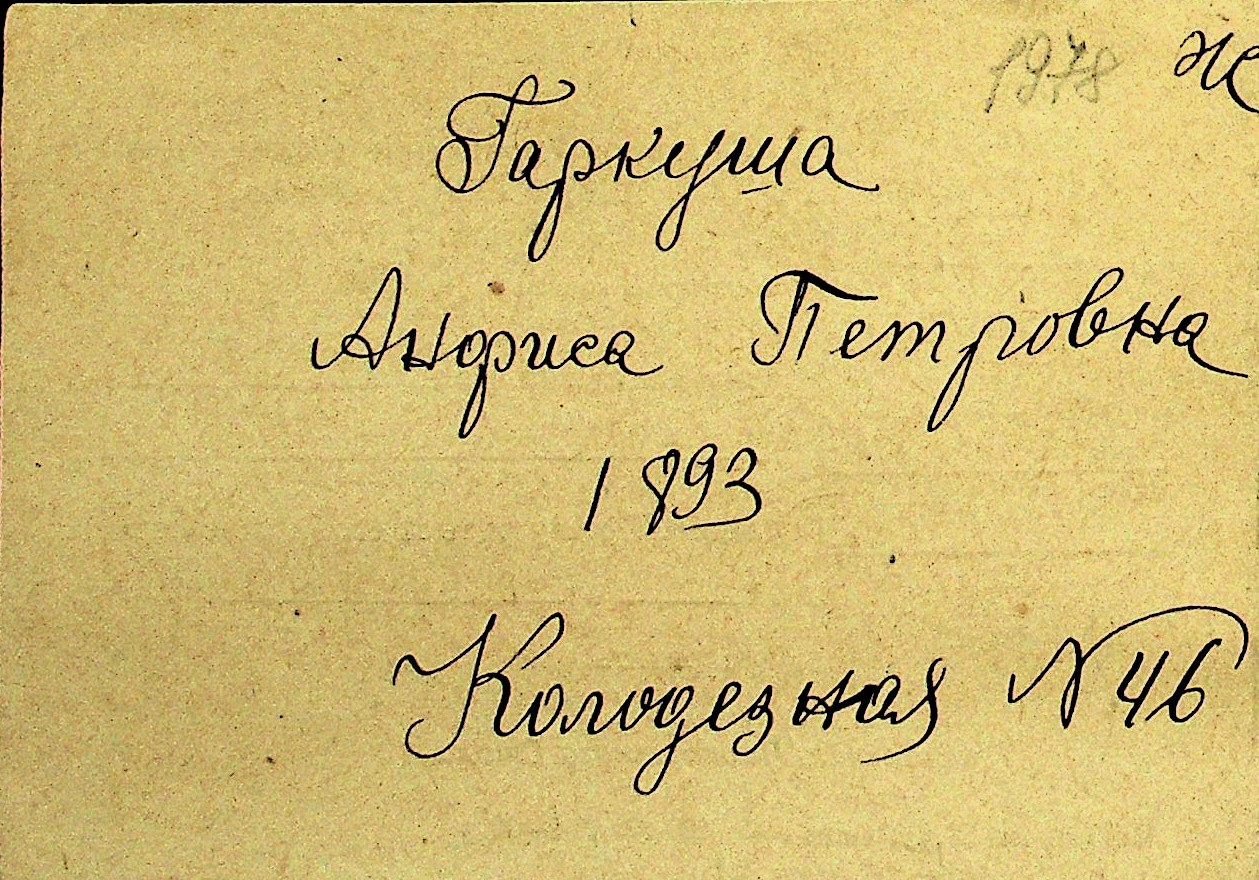 1978
Гаркуша
Анфиса Петровна
1893
Колодезная N 46